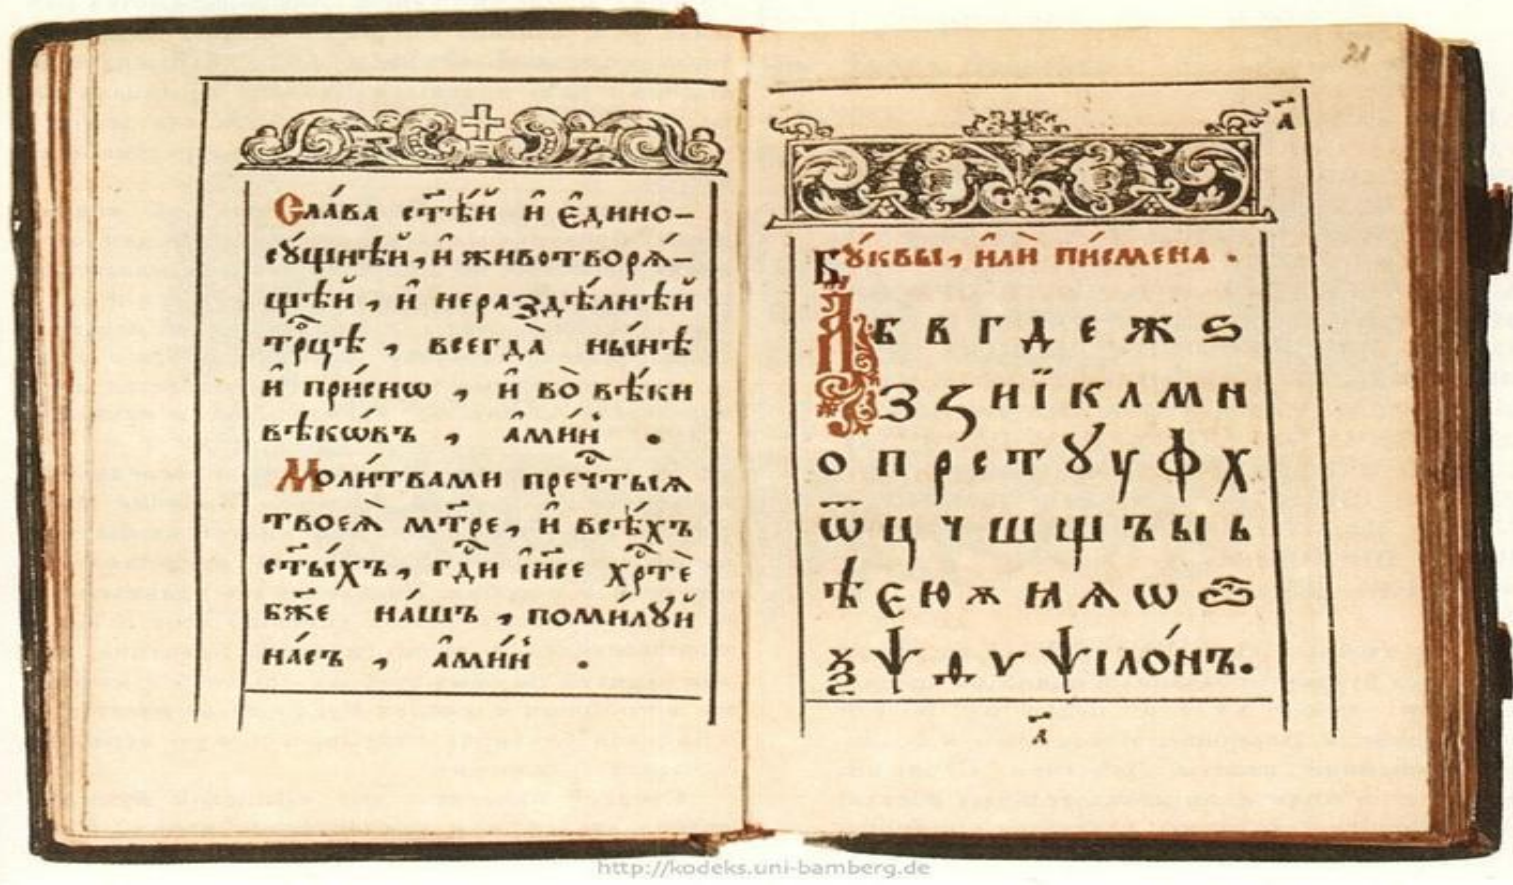 Сла́ва ст҃ѣ́й и҆ є҆дино-
сꙋ́щнѣй, и҆ животворѧ́-
щѣй, и҆ нераздѣ́лнѣй
трⷪ҇цѣ, всегда̀ ны́нѣ
и҆ при́снѡ, и҆ во̀ вѣ́ки
вѣкѡ́въ, а҆ми́нь.
Моли́твами пречⷭ҇тыѧ
твоеѧ̀ мт҃ре, и҆ всѣ́хъ
ст҃ы́хъ, гдⷭ҇и і҆и҃се хрⷭ҇тѐ
бж҃е на́шъ, поми́лꙋй
на́съ, а҆ми́нь.
21
а҃
Бꙋ́квы, и҆лѝ пи́смена.
А Б В Г Д Е Ж Ѕ
З Ꙁ И Ї К Л М Н
О П Р С Т Ꙋ У Ф Х
Ѿ Ц Ч Ш Щ Ъ Ы Ь
Ѣ Є Ю Ѫ Ꙗ Ѧ Ѡ Ѽ
Ѯ Ѱ Ѳ Ѵ Ѱїло́нъ.
а҃
http://kodeks.uni-bamberg.de